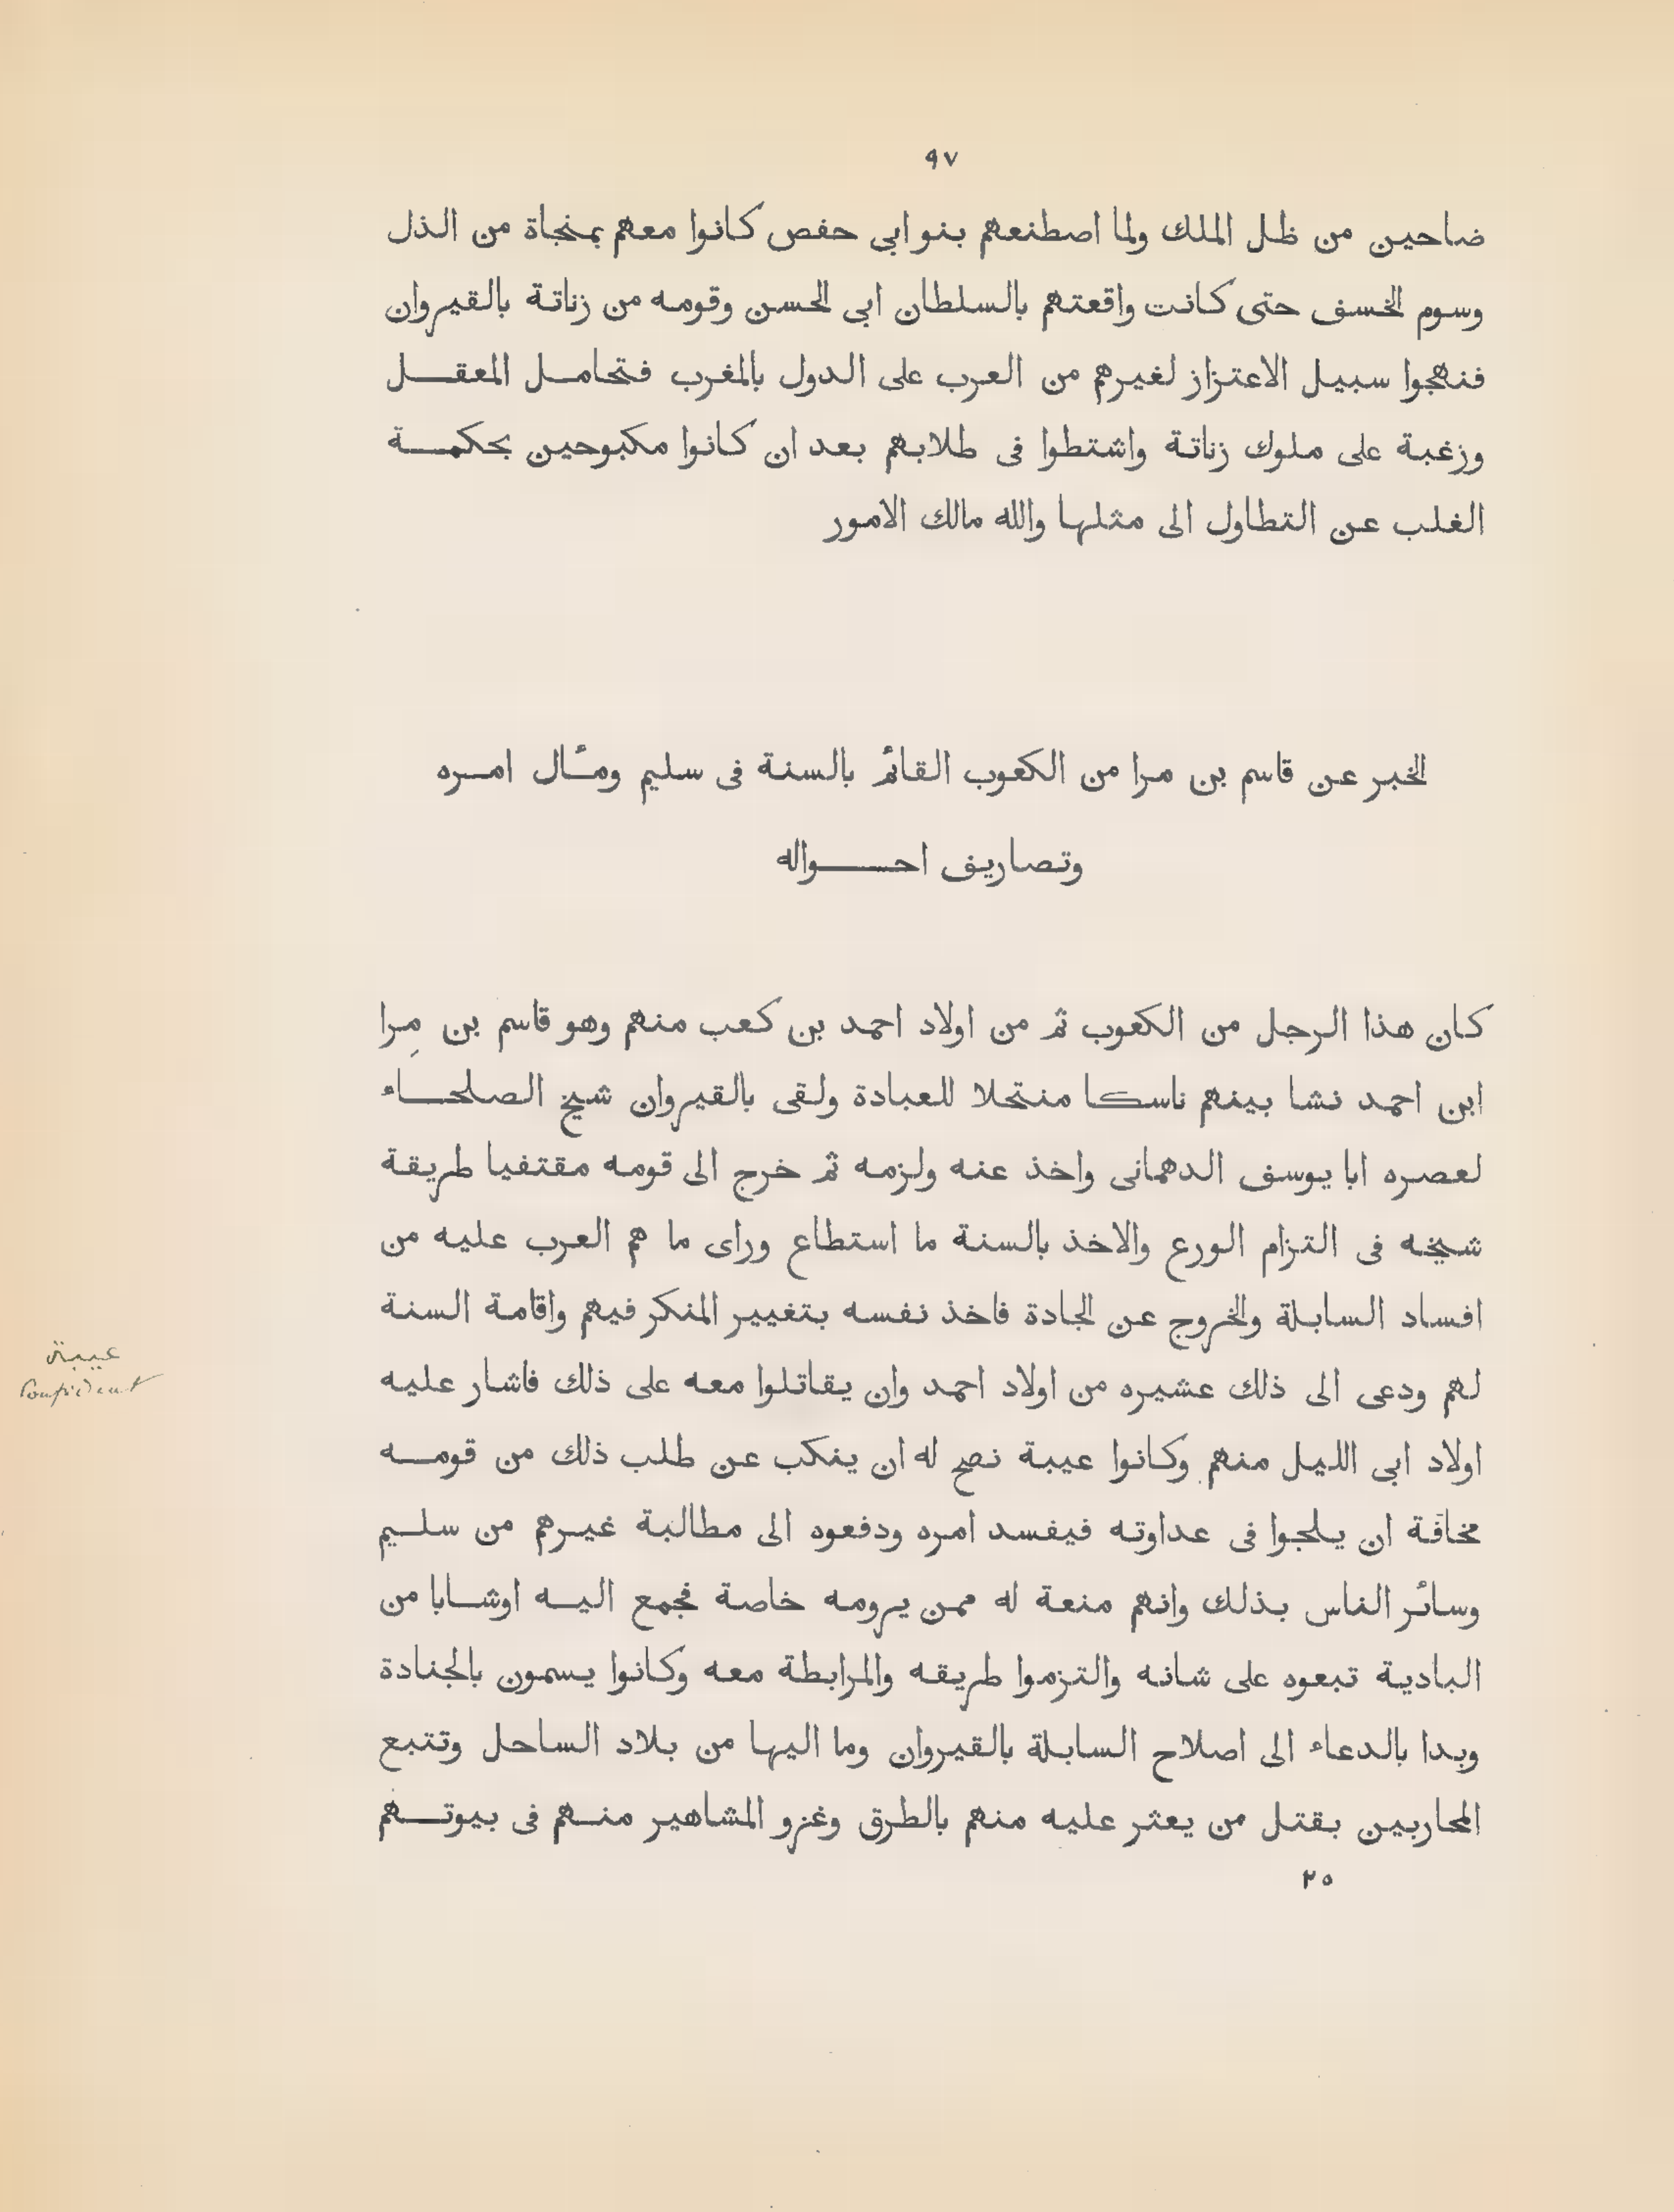 ٩٧
ضاحين من ظل الملك ولما اصطنعهم بنو ابى حفص كانوا معهم بمنجاة من الذل
وسوم الخسف حتى كانت واقعتهم بالسلطان ابى الحسن وقومه من زناتة بالقيروان
فنهجوا سبيل الاعتزاز لغيرهم من العرب على الدول بالمغرب فتحامل المعقل
وزغبة على ملوك زناتة واشتطوا فى طلابهم بعد ان كانوا مكبوحين بحكمة
الغلب عن التطاول الى مثلها والله مالك الامور
الخبر عن قاسم بن مرا من الكعوب القائم بالسنة فى سليم ومـٔال امره
وتصاريف احواله
كان هذا الرجل من الكعوب ثم من اولاد احمد بن كعب منهم وهو قاسم بن مِرا
ابن احمد نشا بينهم ناسكا منتحلا للعبادة ولقى بالقيروان شيخ الصلحاء
لعصره ابا يوسف الدهمانى واخذ عنه ولزمه ثم خرج الى قومه مقتفيا طريقة
شيخه فى التزام الورع والاخذ بالسنة ما استطاع وراى ما هم العرب عليه من
افساد السابلة والخروج عن الجادة فاخذ نفسه بتغيير المنكر فيهم واقامة السنة
لهم ودعى الى ذلك عشيره من اولاد احمد وان يقاتلوا معه على ذلك فاشار عليه
اولاد ابى الليل منهم وكانوا عيبة نصح له ان ينكب عن طلب ذلك من قومه
مخافة ان يلجوا فى عداوته فيفسد امره ودفعوه الى مطالبة غيرهم من سليم
وسائر الناس بذلك وانهم منعة له ممن يرومه خاصة فجمع اليه اوشابا من
البادية تبعوه على شانه والتزموا طريقه والمرابطة معه وكانوا يسمون بالجنادة
وبدا بالدعاء الى اصلاح السابلة بالقيروان وما اليها من بلاد الساحل وتتبع
المحاربين بقتل من يعثر عليه منهم بالطرق وغزو المشاهير منهم فى بيوتهم
٢٥
عيبة
Confident